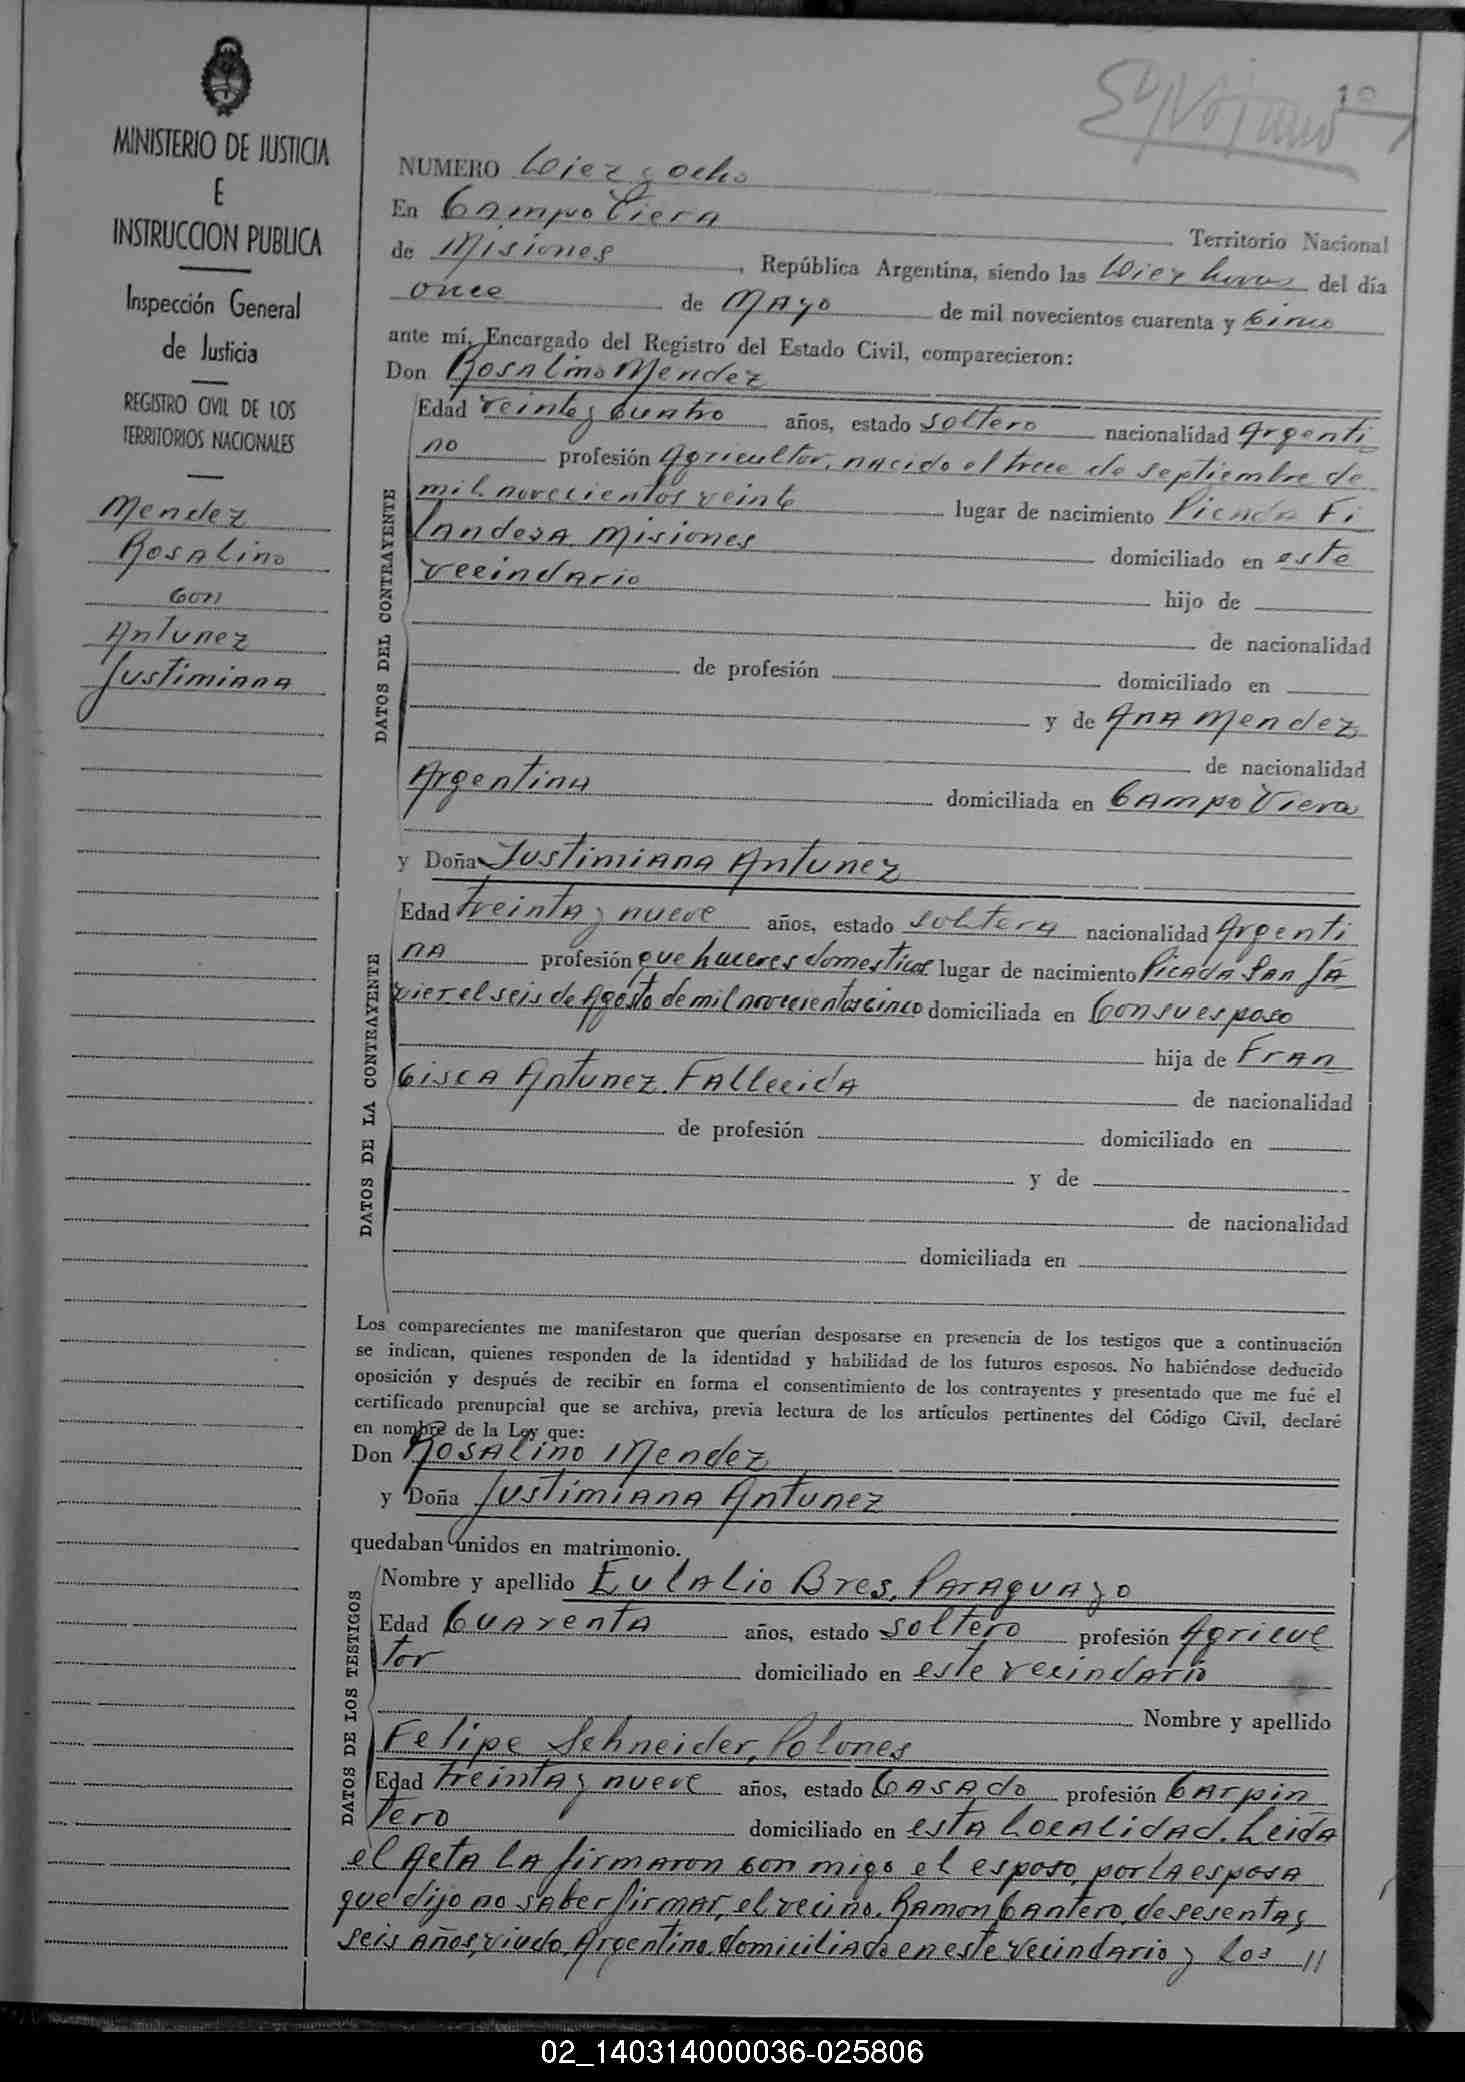 MINISTERIO DE JUSTICIA
E
INSTRUCCION PUBLICA
Inspección General
de Justicia
REGISTRO CIVIL DE LOS
TERRITORIOS NACIONALES
Mendez
Rosalino
con
Antunez
Justimiana
10
NUMERO Diez y ocho
En Campo Viera Territorio Nacional
de Misiones, República Argentina, siendo las Diez horas del día
once de Mayo de mil novecientos cuarenta y cinco
ante mí, Encargado del Registro del Estado Civil, comparecieron:
Don Rosalino Mendez
DATOS DEL CONTRAYENTE
Edad veinte y cuatro años, estado soltero nacionalidad Argenti
no profesión Agricultor, nacido el trece de septiembre de
mil novecientos veinte lugar de nacimiento Picada Fi
landesa Misiones domiciliado en este
vecindario hijo de
de nacionalidad
de profesión domiciliado en
y de Ana Mendez
de nacionalidad
Argentina domiciliada en Campo Viera
y Doña Justimiana Antunez
DATOS DE LA CONTRAYENTE
Edad treinta y nueve años, estado soltera nacionalidad Argenti
na profesión que haceres domesticos lugar de nacimiento Picada San Ja
vier el seis de Agosto de mil novecientos cinco domiciliada en con su esposo
hija de Fran
cisca Antunez. Fallecida de nacionalidad
de profesión domiciliado en
y de
de nacionalidad
domiciliada en
Los comparecientes me manifestaron que querían desposarse en presencia de los testigos que a continuación
se indican, quienes responden de la identidad y habilidad de los futuros esposos. No habiéndose deducido
oposición y después de recibir en forma el consentimiento de los contrayentes y presentado que me fué el
certificado prenupcial que se archiva, previa lectura de los artículos pertinentes del Código Civil, declaré
en nombre de la Ley que:
Don Rosalino Mendez
y Doña Justimiana Antunez
quedaban unidos en matrimonio.
DATOS DE LOS TESTIGOS
Nombre y apellido Eulalio Bres, Paraguayo
Edad Cuarenta años, estado soltero profesión Agricul
tor domiciliado en este vecindario
Nombre y apellido
Felipe Schneider, Polones
Edad treinta y nueve años, estado Casado profesión Carpin
tero domiciliado en esta localidad. Leida
el Acta la firmaron con migo el esposo, por la esposa
que dijo no saber firmar, el vecino. Ramon Cantero, de sesenta y
seis años, viudo, Argentino, domiciliado en este vecindario y los //
02_140314000036-025806